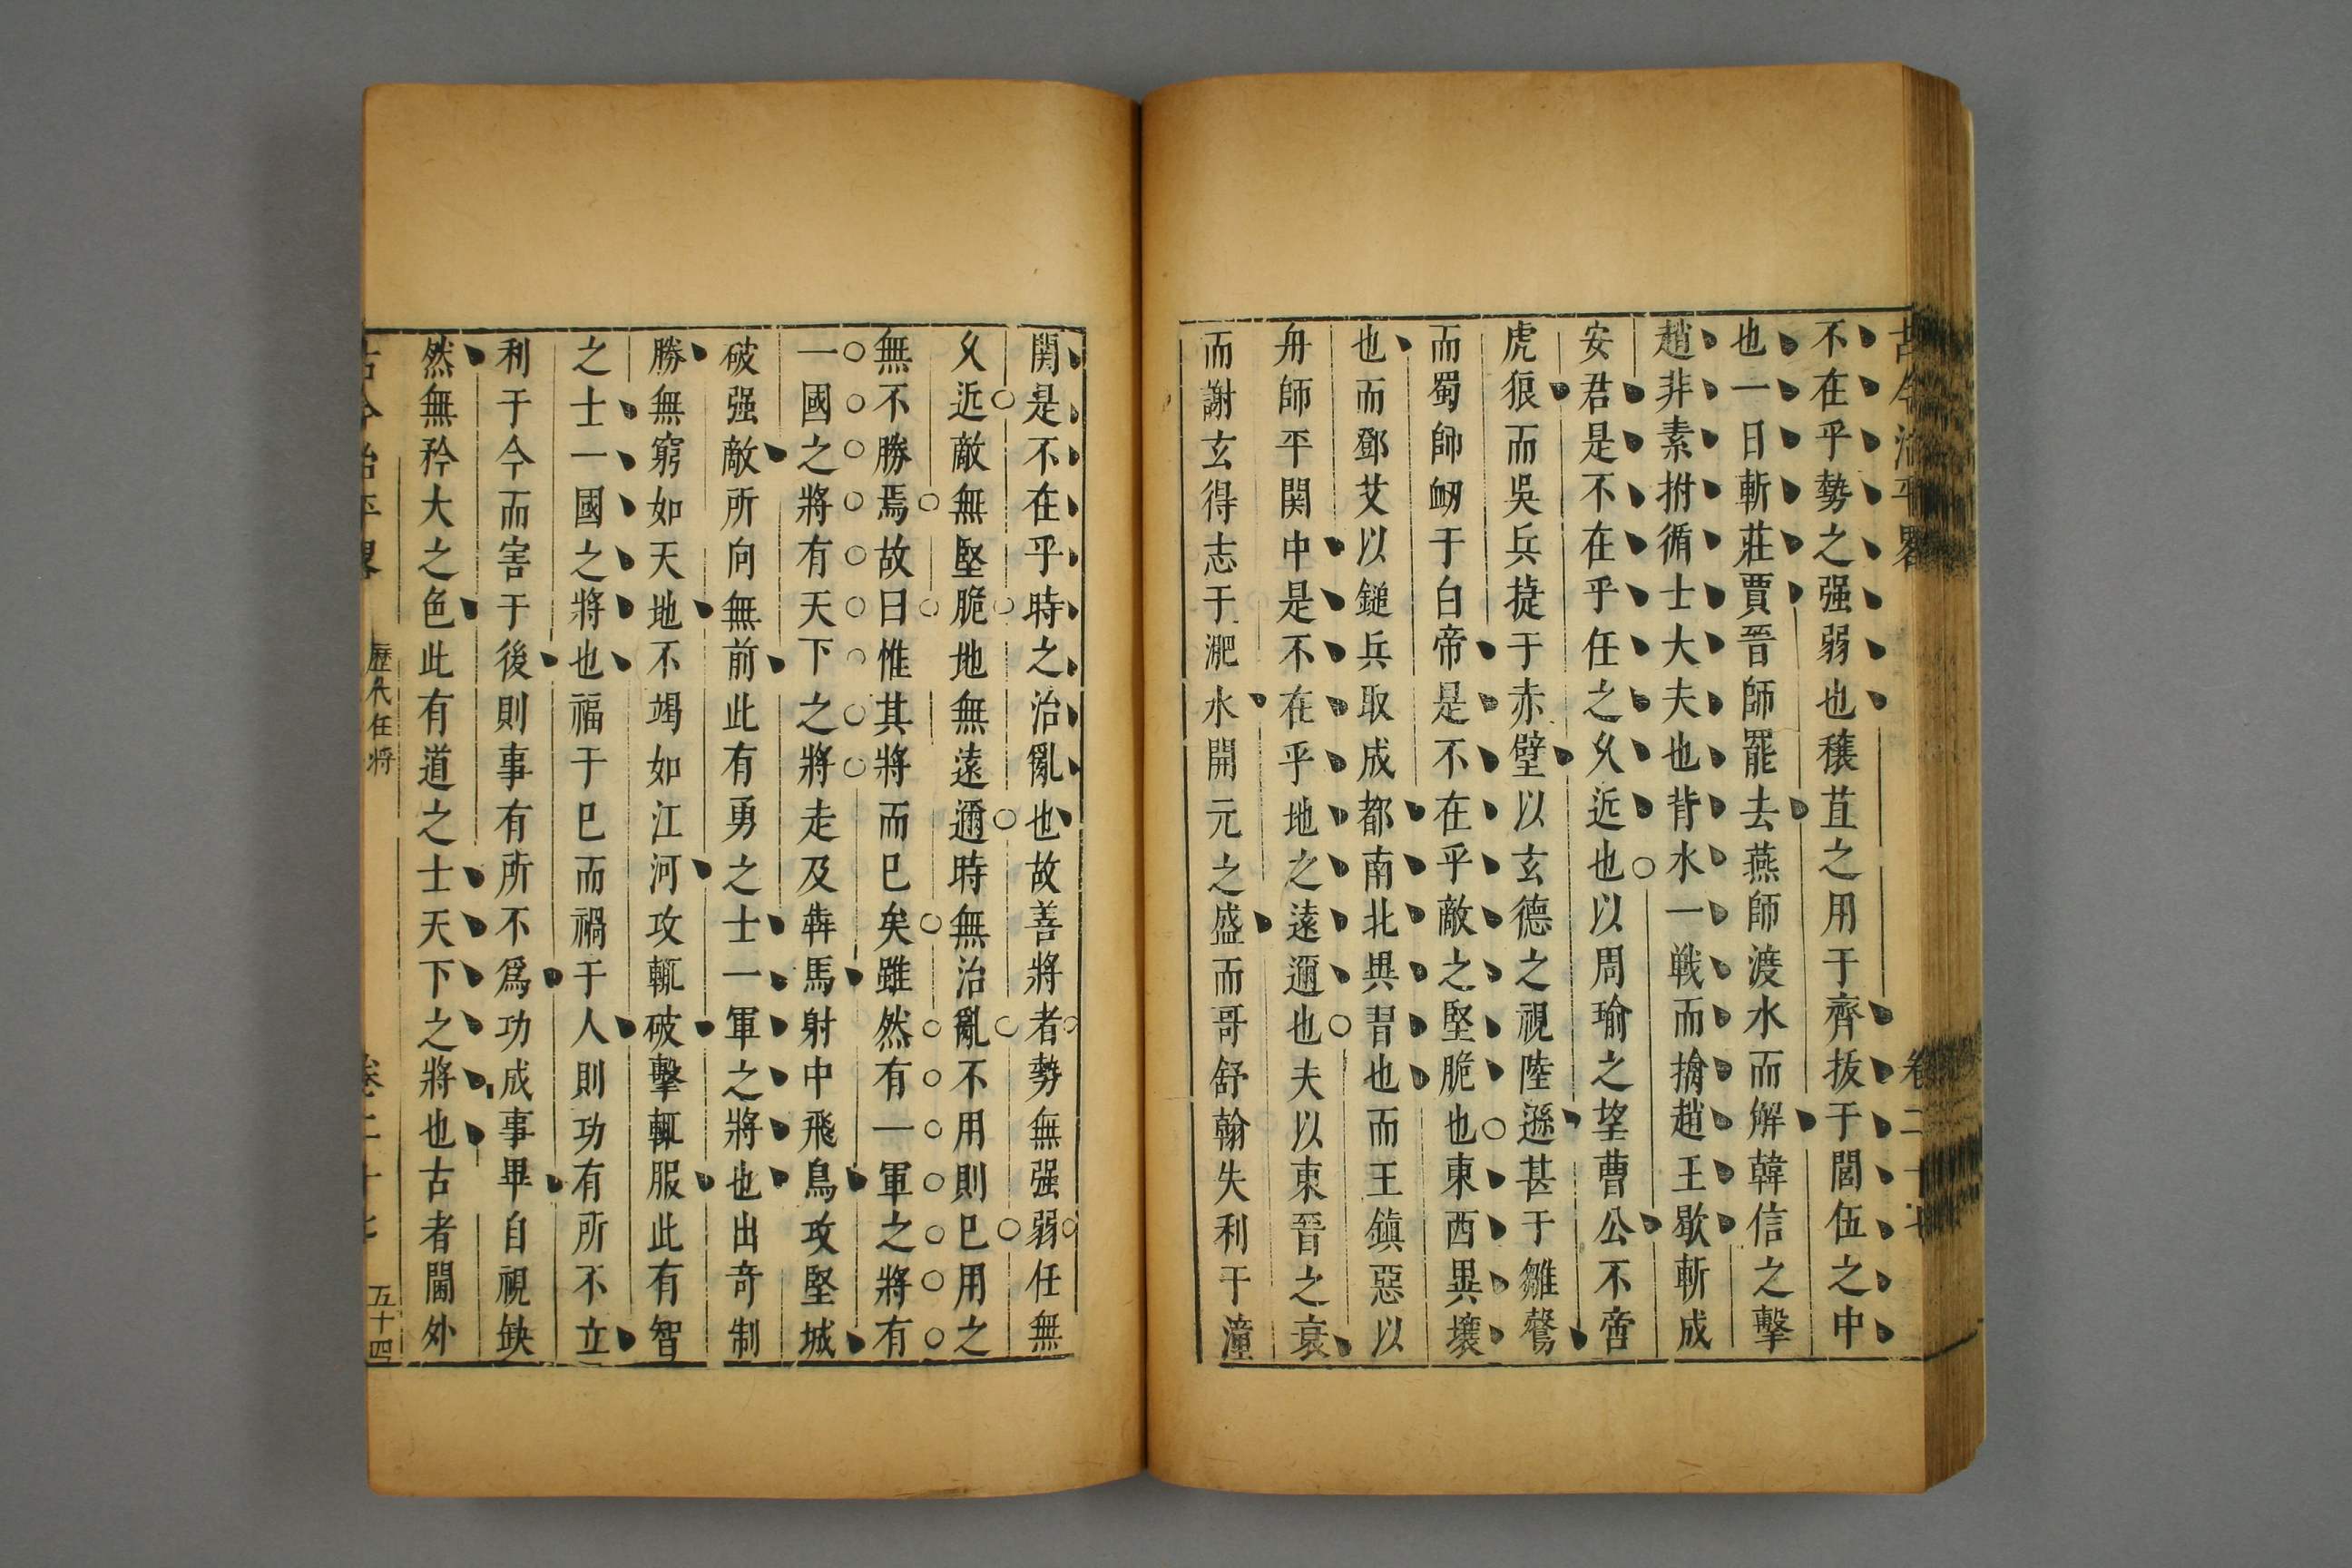 古今治平畧 卷二十七
不在乎勢之强弱也穰苴之用于齊㧞于閭伍之中
也一日斬莊賈晉師罷去燕師渡水而解韓信之擊
趙非素拊循士大夫也背水一戰而擒趙王歇斬成
安君是不在乎任之乆近也以周瑜之望曹公不啻
虎狼而吳兵捷于赤壁以玄德之視陸遜甚于雛鷇
而蜀師衂于白帝是不在乎敵之堅脆也東西異壤
也而鄧艾以鎚兵取成都南北異習也而王鎮惡以
舟師平関中是不在乎地之遠邇也夫以東晉之衰
而謝玄得志于淝水開元之盛而哥舒翰失利于潼
関是不在乎時之治亂也故善將者勢無强弱任無
乆近敵無堅脆地無遠邇時無治亂不用則已用之
無不勝焉故曰惟其將而已矣雖然有一軍之將有
一國之將有天下之將走及犇馬射中飛鳥攻堅城
破强敵所向無前此有勇之士一軍之將也出奇制
勝無窮如天地不竭如江河攻輒破擊輒服此有智
之士一國之將也福于已而禍于人則功有所不立
利于今而害于後則事有所不爲功成事畢自視缺
然無矜大之色此有道之士天下之將也古者閫外
古今治平畧 歷代任將 卷二十七 五十四